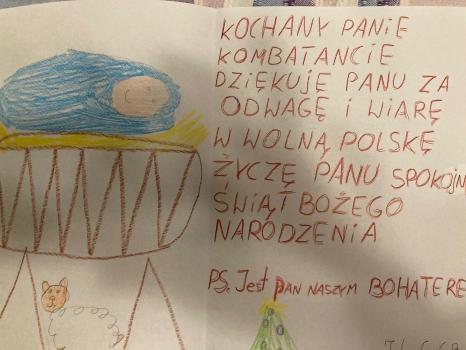 KOCHANY PANIE
KOMBATANCIE
DZIĘKUJĘ PANU ZA
ODWAGĘ I WIARĘ
W WOLNĄ POLSKĘ
ŻYCZĘ PANU SPOKOJN
ŚWIĄT BOŻEGO
NARODZENIA
PS. Jest PAN NASZYM BOHATERE